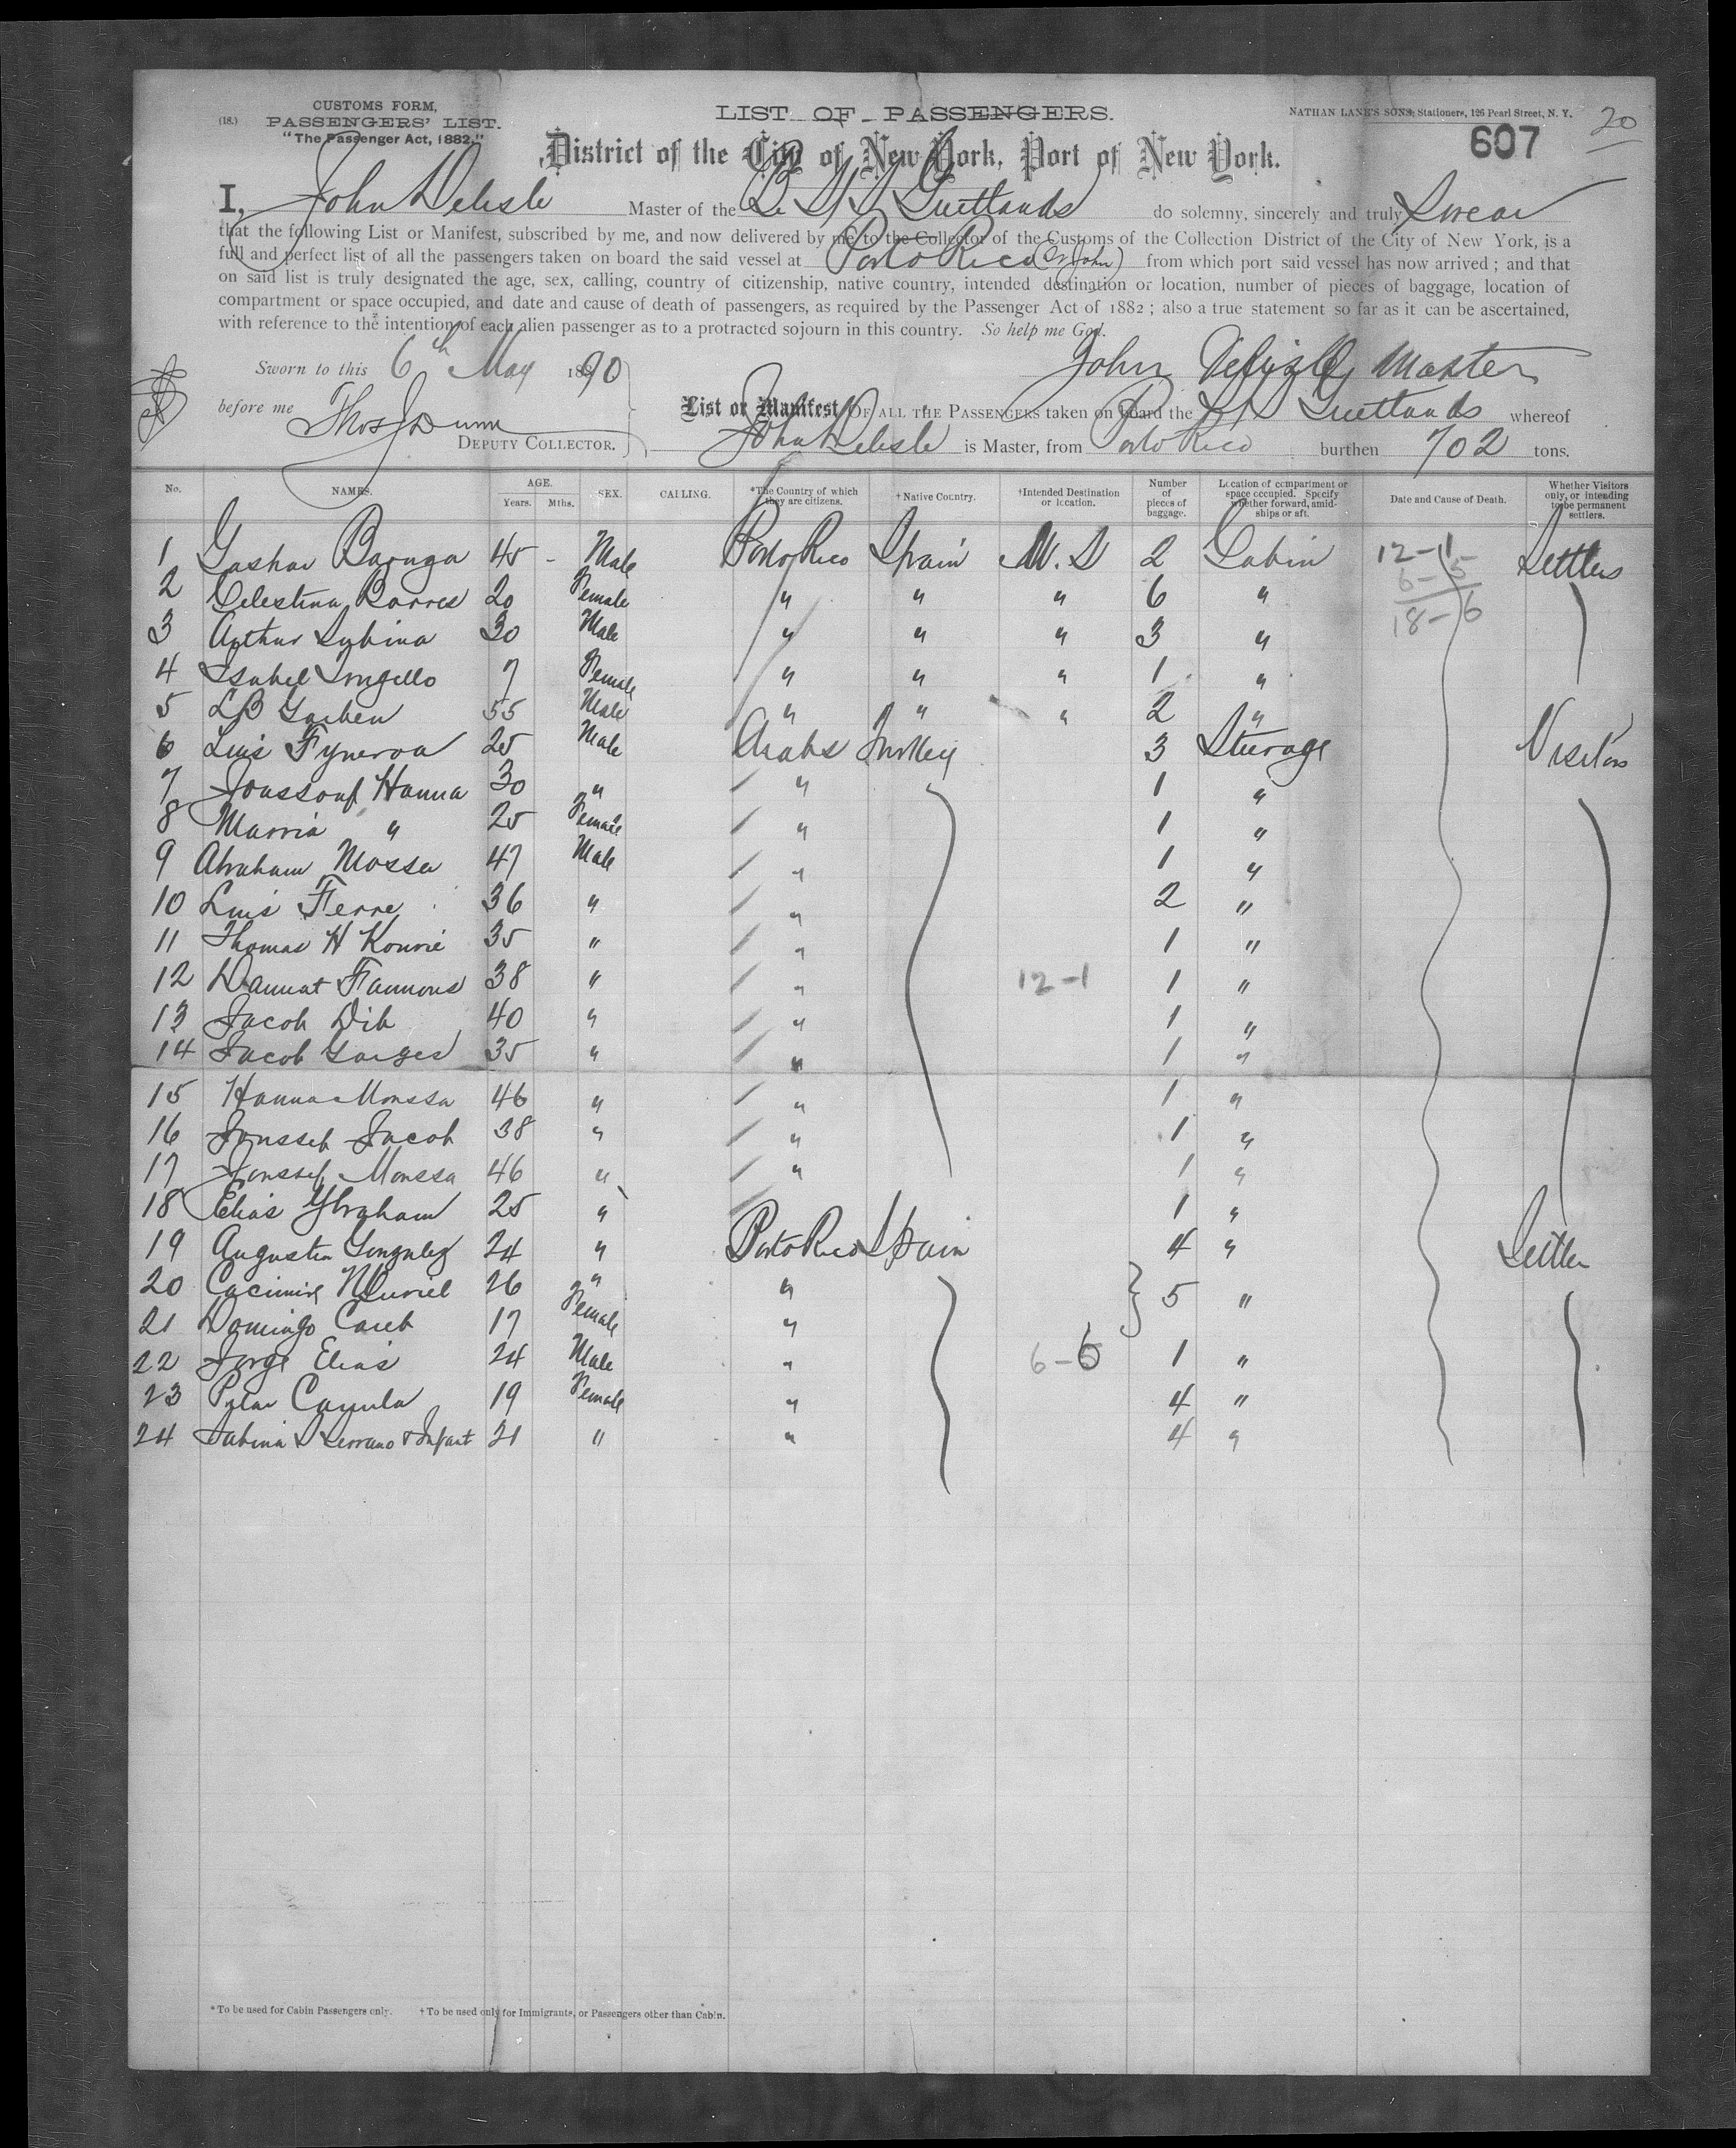 (18.) CUSTOMS FORM,
PASSENGERS' LIST.
"The Passenger Act, 1882."
LIST OF PASSENGERS.
NATHAN LANE'S SONS, Stationers, 126 Pearl Street, N. Y.
20
607
District of the City of New York, Port of New York.
I, John Delisle Master of the B. S/S Guetlands do solemny, sincerely and truly Swear
that the following List or Manifest, subscribed by me, and now delivered by me to the Collector of the Customs of the Collection District of the City of New York, is a
full and perfect list of all the passengers taken on board the said vessel at Porto Rico (St John) from which port said vessel has now arrived ; and that
on said list is truly designated the age, sex, calling, country of citizenship, native country, intended destination or location, number of pieces of baggage, location of
compartment or space occupied, and date and cause of death of passengers, as required by the Passenger Act of 1882 ; also a true statement so far as it can be ascertained,
with reference to the intention of each alien passenger as to a protracted sojourn in this country. So help me God.
Sworn to this 6th May 1890
John Delisle Master
before me Thos J Dunn
DEPUTY COLLECTOR.
List or Manifest OF ALL THE PASSENGERS taken on board the S/S Guetlands whereof
John Delisle is Master, from Porto Rico burthen 702 tons.
No. NAMES. AGE. Years. Mths. SEX. CALLING. *The Country of which they are citizens. †Native Country. †Intended Destination or location. Number of pieces of baggage. Location of compartment or space occupied. Specify whether forward, amidships or aft. Date and Cause of Death. Whether Visitors only, or intending to be permanent settlers.
1 Gaspar Barnga 45 - Male Porto Rico Spain U. S 2 Cabin 12-1 Settlers
2 Celestina Borres 20 Female " " " 6 "
3 Arthur Lubina 30 Male " " " 3 " 18-6
4 Isabel 7 Female " " " 1 "
5 LB Garben 55 Male " " " 2 "
6 Luis Fyneroa 25 Male Arabs Turkey 3 Steerage Visitors
7 Joussouf Hanna 30 " " 1 "
8 Marria " 25 Female " 1 "
9 Abraham Mossa 47 Male " 1 "
10 Luis Ferre 36 " " 2 "
11 Thomas H Kourie 35 " " 1 "
12 Dannat Fannous 38 " " 12-1 1 "
13 Jacob Dib 40 " " 1 "
14 Jacob Garges 35 " " 1 "
15 Hanna Moussa 46 " " 1 "
16 Joussef Jacob 38 " " 1 "
17 Joussef Moussa 46 " " 1 "
18 Elias Ybraham 25 " 1 "
19 Augustin Gonzalez 24 " Porto Rico Spain 4 " Settler
20 Cacimire Muriel 26 " " 5 "
21 Domingo Careb 17 Female "
22 Jorge Elias 24 Male " 6-6 1 "
23 Pylar Camla 19 Female " 4 "
24 Sabina S Serrano & Infant 21 " " 4 "
*To be used for Cabin Passengers only. †To be used only for Immigrants, or Passengers other than Cabin.